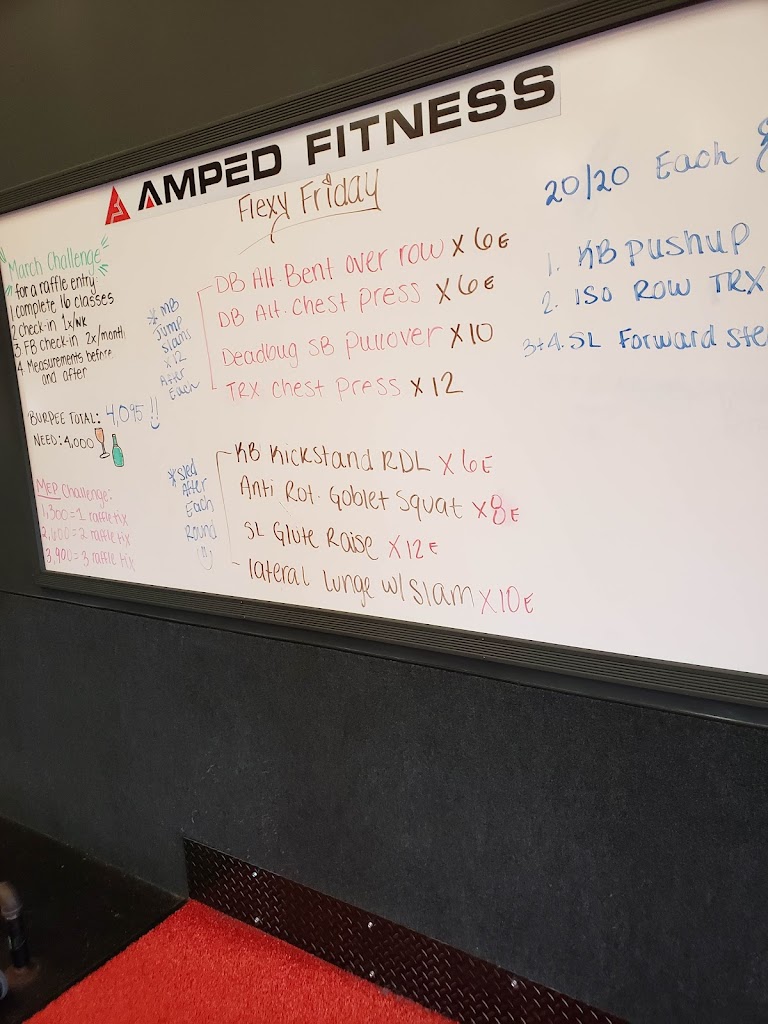 AMPED FITNESS
Flexy Friday
March Challenge
for a raffle entry
1. complete 16 classes
2. check-in 1x/wk
3. FB check-in 2x/month
4. Measurements before
and after
BURPEE TOTAL: 4,095!!
NEED: 4,000
MEP Challenge:
1,300 = 1 raffle tix
2,600 = 2 raffle tix
3,900 = 3 raffle tix
* MB
Jump
Slams
x12
After
Each
DB Alt. Bent over row x 6E
DB Alt. Chest press x 6E
Deadbug SB pullover x10
TRX chest press x 12
* Sled
After
Each
Round
KB Kickstand RDL x 6E
Anti Rot. Goblet Squat x8E
SL Glute Raise x12E
lateral lunge w/slam x10E
20/20 Each
1. KB pushup
2. ISO Row TRX
3+4. SL Forward Ste